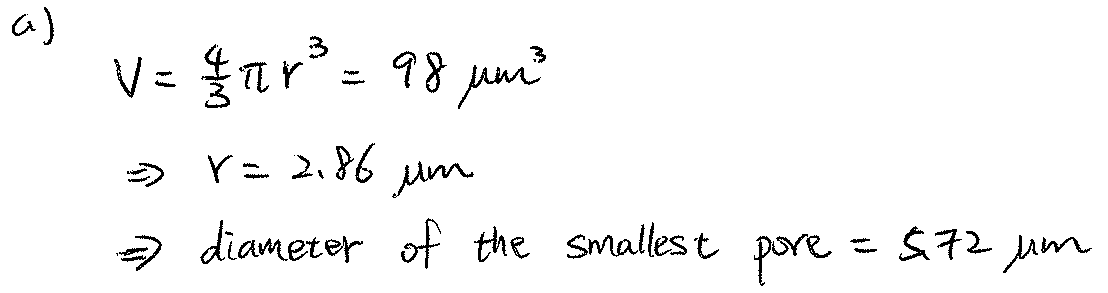 a)
V = 4/3 π r³ = 98 μm³
⇒ r = 2.86 μm
⇒ diameter of the smallest pore = 5.72 μm